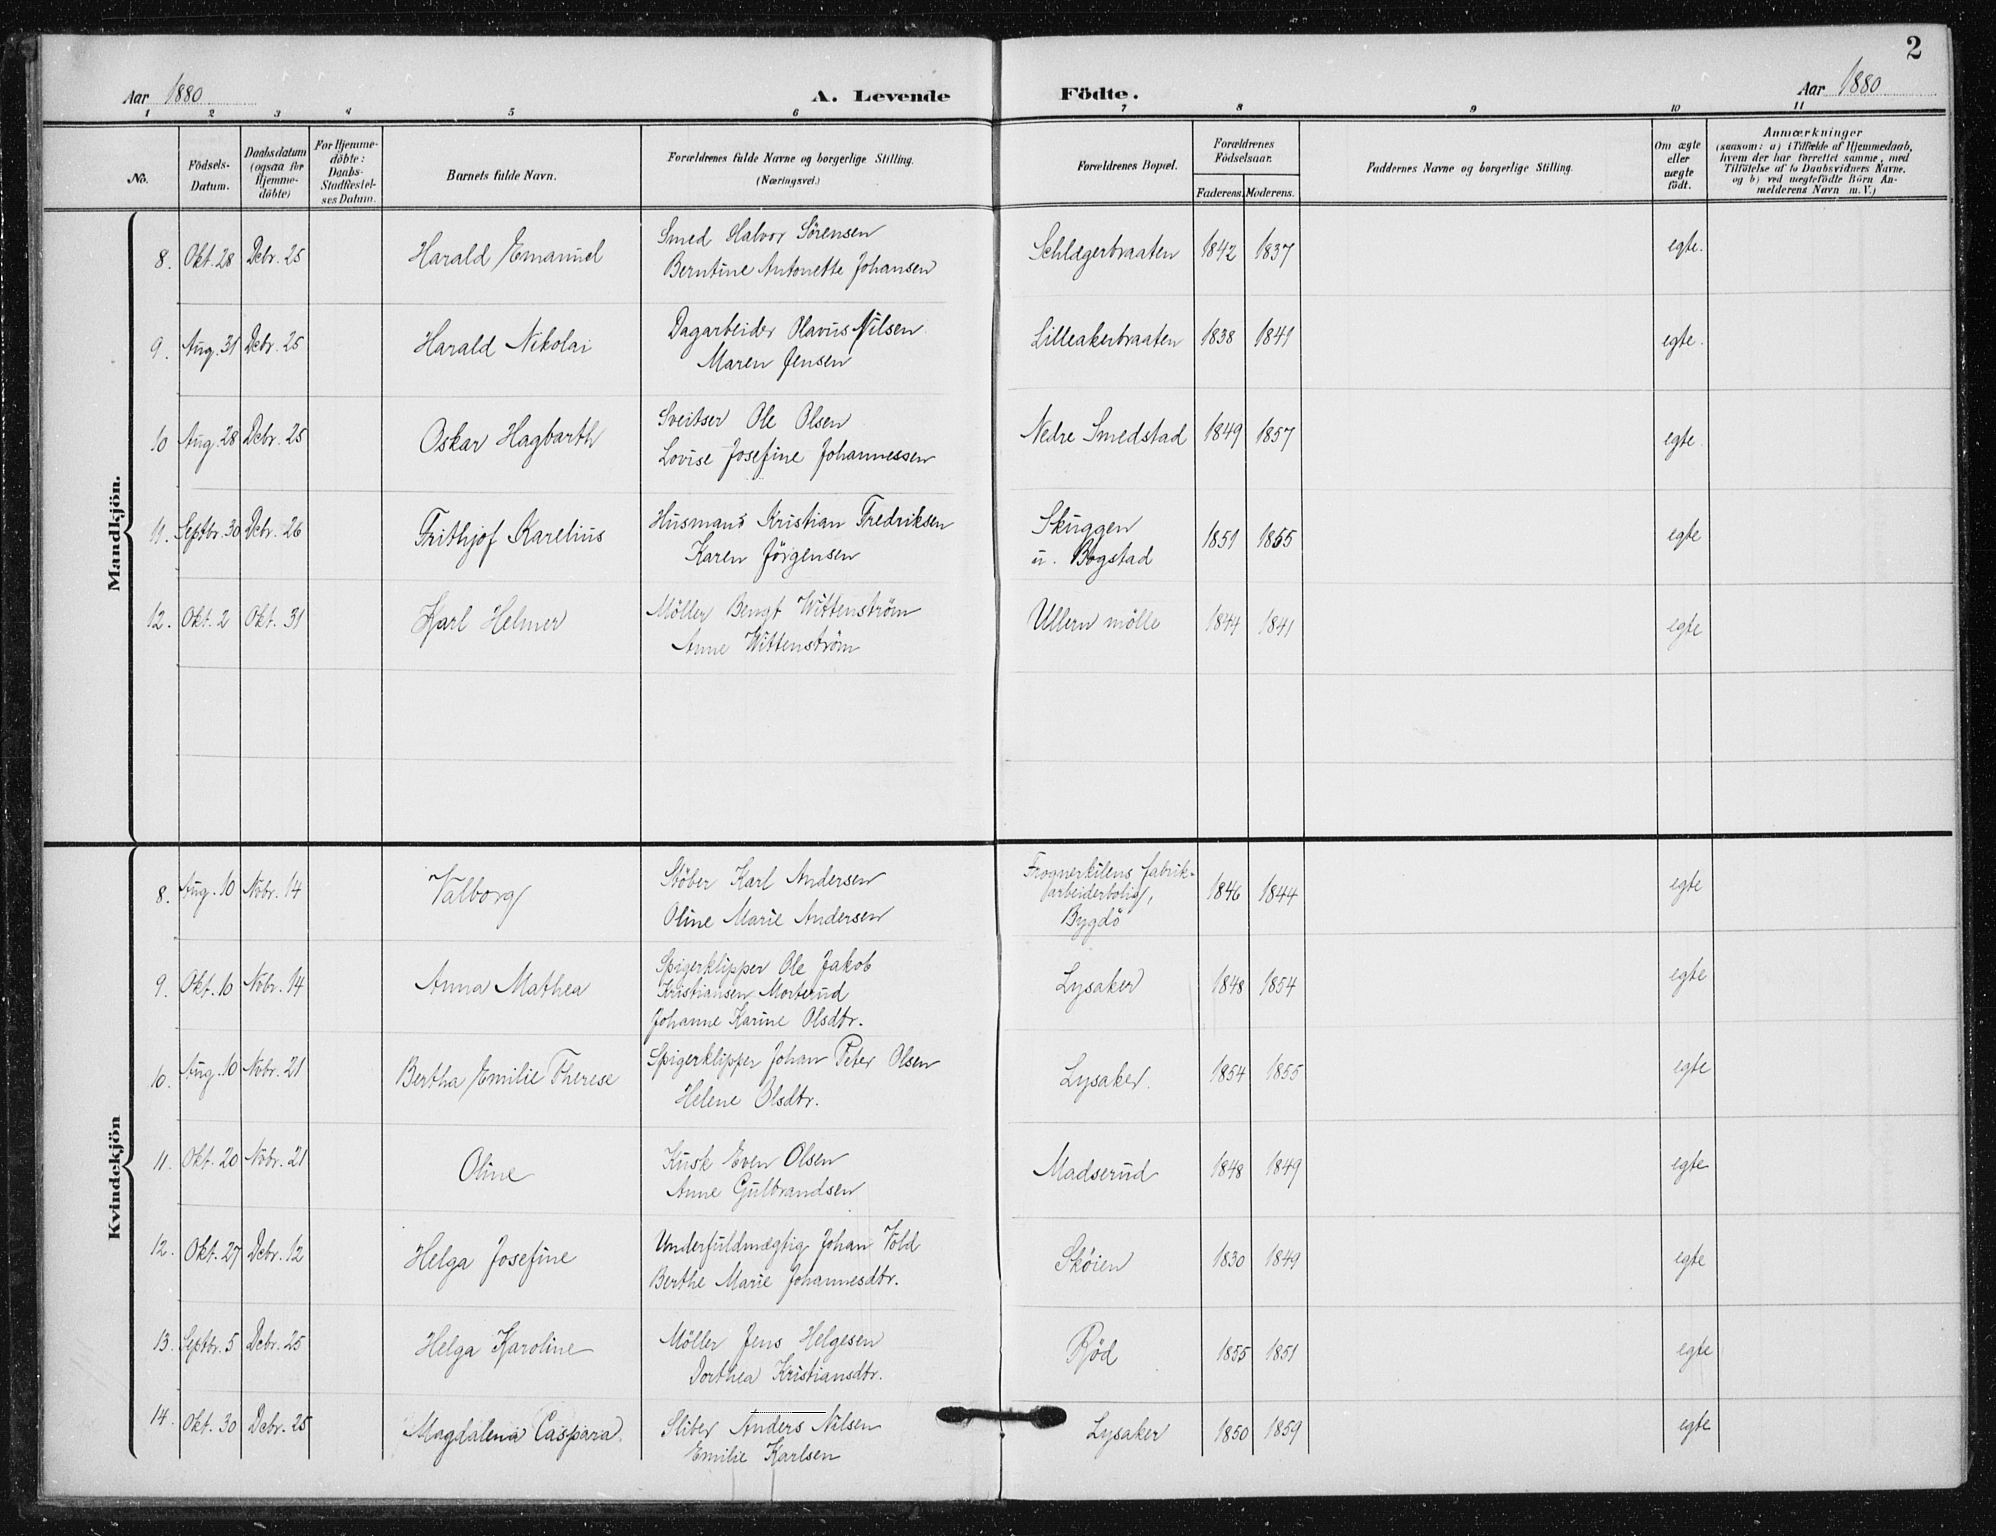 2
Aar 1880 A. Levende Födte. Aar 1880
1 2 3 4 5 6 7 8 9 10 11
No.
Födsels-Datum.
Daabsdatum (ogsaa for Hjemme-döbte)
For Hjemme-döbte: Daabs-Stadfæstel-ses Datum.
Barnets fulde Navn.
Forældrenes fulde Navne og borgerlige Stilling.
(Næringsvei.)
Forældrenes Bopæl.
Forældrenes Födselsaar.
Faderens. Moderens.
Faddernes Navne og borgerlige Stilling.
Om ægte eller uægte födt.
Anmærkninger
(saasom: a) i Tilfælde af Hjemmedaab,
hvem der har forrettet samme, med
Tilföielse af to Daabsvidners Navne.
og b) ved uægtefödte Börn An-
melderens Navn m. V.)
Mandkjön.
8. Okt. 28 Dcbr. 25 Harald Emanuel Smed Halvor Sörensen Schlægerbraaten 1842 1837 egte.
Berntine Antonette Johansen
9. Aug. 31 Dcbr. 25 Harald Nikolai Dagarbeider Olavus Nilsen Lilleakerbraaten 1838 1841 egte.
Maren Jensen
10 Aug. 28 Dcbr. 25 Oskar Hagbarth Sveitser Ole Olsen Nedre Smedstad 1849 1857 egte.
Lovise Josefine Johannessen
11. Septbr. 30 Dcbr. 26 Frithjof Karelius Husmans Kristian Fredriksen Skuggen 1851 1855 egte
Karen Jörgensen u. Bogstad
12. Okt. 2 Okt. 31 Karl Helmer Möller Bengt Wittenström Ullern mölle 1844 1841 egte
Anne Wittenström
Kvindekjön
8. Aug. 10 Nvbr. 14 Valborg Stöber Karl Andersen Frognerkilens fabrik- 1846 1844 egte
Oline Marie Andersen arbeiderbolig,
Bygdö
9. Okt. 10 Nvbr. 14 Anna Mathea Spigerklipper Ole Jakob Lysaker 1848 1854 egte
Kristiansen Morterud
Johanne Karine Olsdtr.
10. Aug. 10 Nvbr. 21 Bertha Emilie Therese Spigerklipper Johan Peter Olsen Lysaker. 1854 1855 egte
Helene Olsdtr.
11. Okt. 20 Nvbr. 21 Oline Kusk Even Olsen Madserud 1848 1849 egte
Anne Gulbrandsen
12. Okt. 27 Dcbr. 12 Helga Josefine Underfuldmægtig Johan Vold Skøien 1830 1849 egte
Berthe Marie Johannesdtr.
13. Septbr. 5 Dcbr. 25 Helga Karoline Möller Jens Helgesen Röd 1855 1851 egte
Dorthea Kristiansdtr.
14. Okt. 30 Dcbr. 25 Magdalena Caspara. Sliber Anders Nilsen Lysaker 1850 1859 egte
Emilie Karlsen